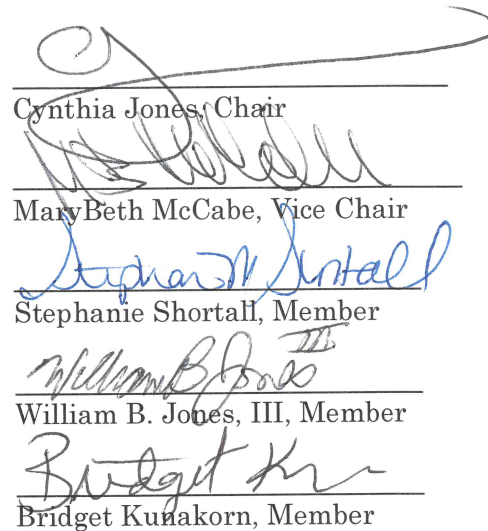 Cynthia Jones, Chair
MaryBeth McCabe, Vice Chair
Stephanie M Shortall
Stephanie Shortall, Member
William B Jones III
William B. Jones, III, Member
Bridget K
Bridget Kunakorn, Member